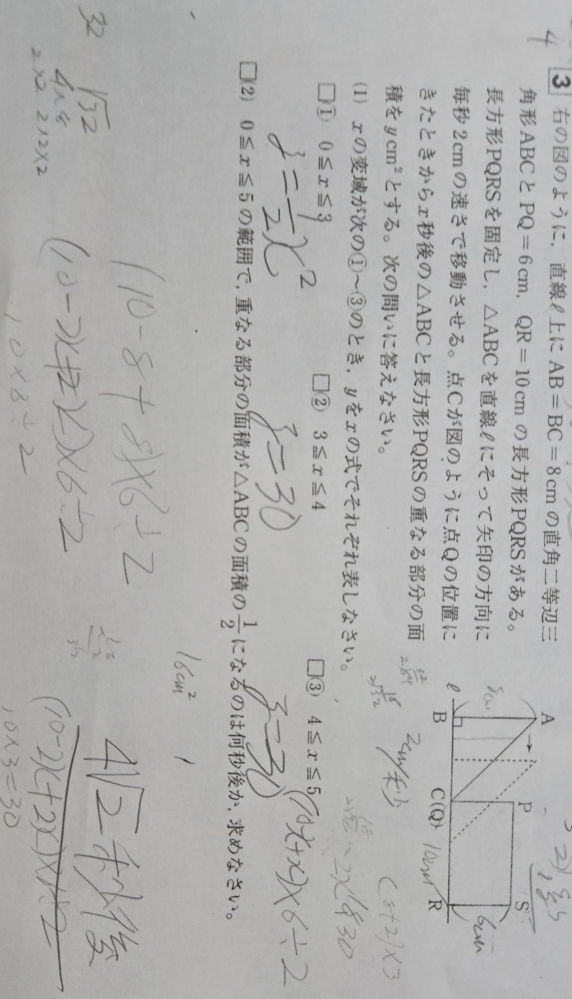 3 右の図のように,直線ℓ上にAB=BC=8cmの直角二等辺三
角形ABCとPQ=6cm,QR=10cmの長方形PQRSがある。
長方形PQRSを固定し,△ABCを直線ℓにそって矢印の方向に
毎秒2cmの速さで移動させる。点Cが図のように点Qの位置に
きたときからx秒後の△ABCと長方形PQRSの重なる部分の面
積をycm²とする。次の問いに答えなさい。
(1) xの変域が次の①～③のとき,yをxの式でそれぞれ表しなさい。
□① 0≦x≦3 □② 3≦x≦4 □③ 4≦x≦5
y=1/2x² y=30 y=30
(10-2x+2x)×6÷2
□(2) 0≦x≦5の範囲で,重なる部分の面積が△ABCの面積の1/2になるのは何秒後か,求めなさい。
16cm²
(10-8+8)×6÷2
4√2秒後
(10-2x+2x)×6÷2
10×6÷2
10×3=30
32
√32
4×8
2×2 2×2×2
A
P
S
8cm
6cm
ℓ
B
C(Q)
10cm
R
2cm/秒
(8+2)×3